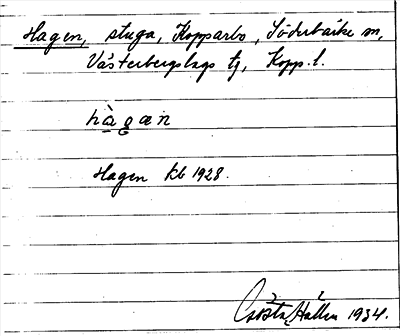 Hagen, stuga, Kopparbo, Söderbärke sn,
Västerbergslags tg, Kopp. l.
hàgan
Hagen kb 1928.
Gösta Hallin 1934.